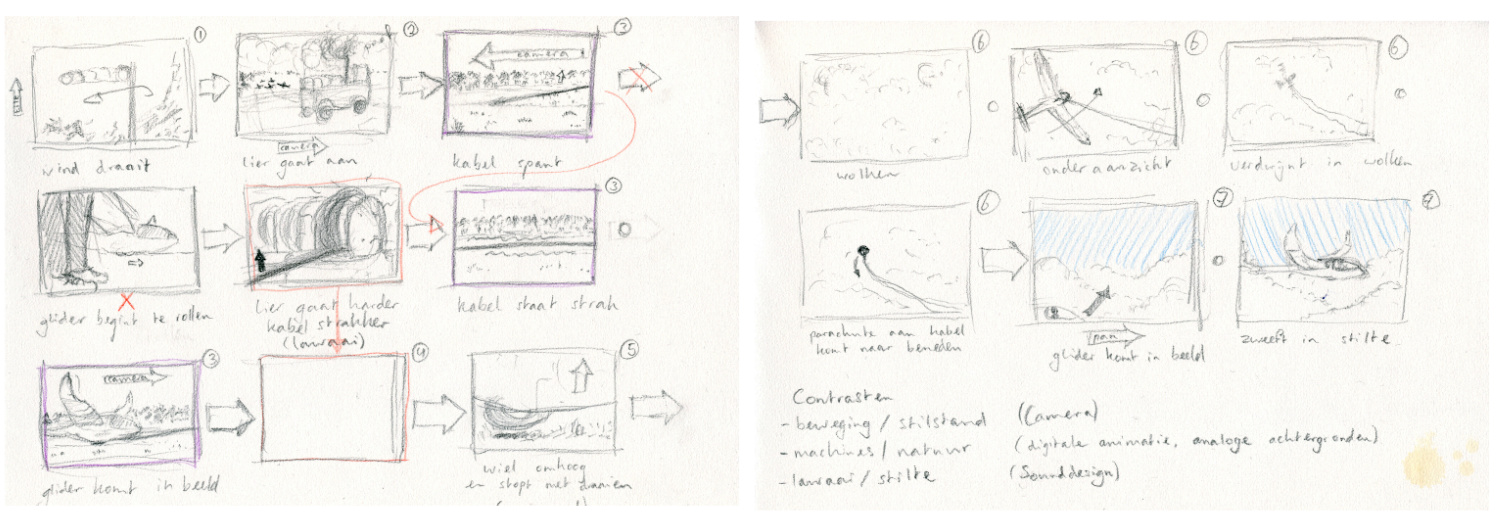 ①
②
③
poef
camera
wind draait
camera
lier gaat aan
kabel spant
③
glider begint te rollen
lier gaat harder
kabel strakker
(lawaai)
kabel staat strak
③
④
⑤
camera
glider komt in beeld
wiel omhoog
en stopt met draaien
⑥
⑥
⑥
wolken
onderaanzicht
verdwijnt in wolken
⑥
⑦
⑦
parachute aan kabel
komt naar beneden
pan
glider komt in beeld
zweeft in stilte
Contrasten
- beweging / stilstand (Camera)
- machines / natuur (digitale animatie, analoge achtergronden)
- lawaai / stilte (Sounddesign)